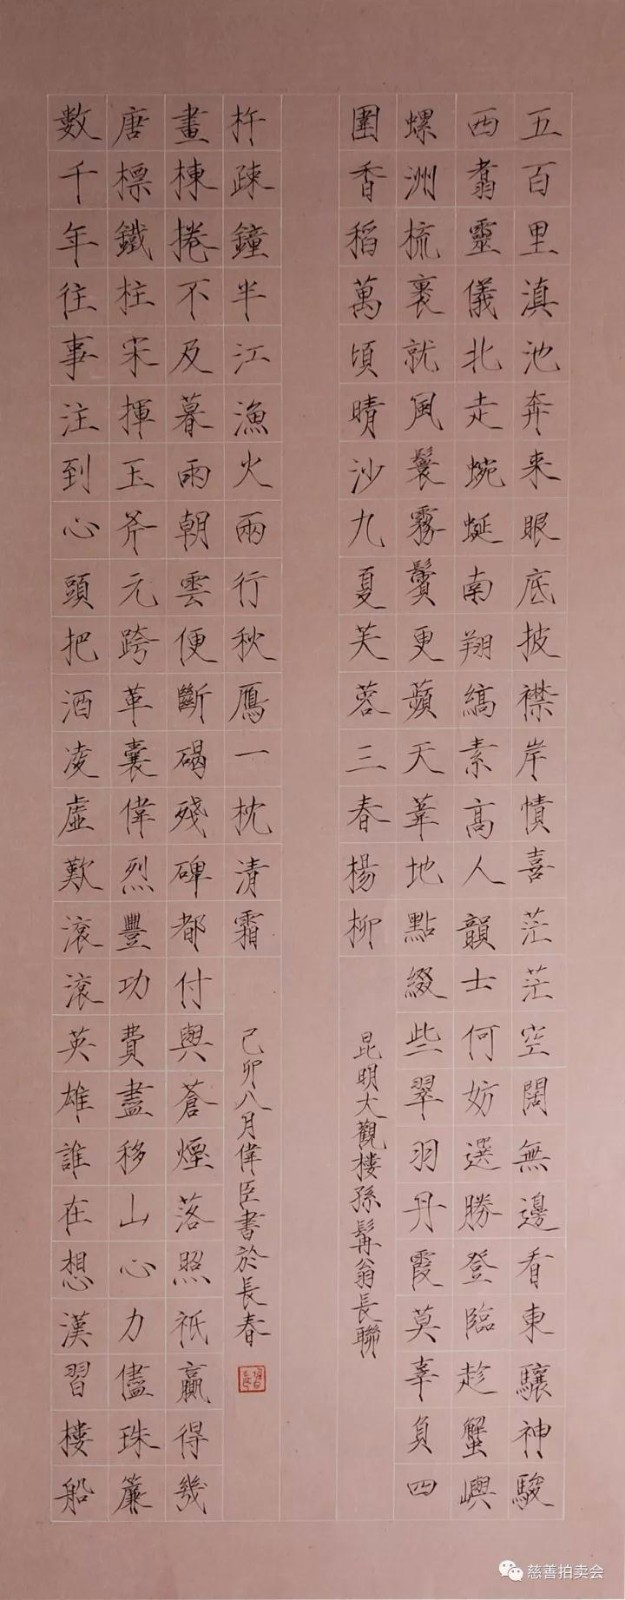 五百里滇池奔來眼底披襟岸幘喜茫茫空闊無邊看東驤神駿
西翥靈儀北走蜿蜒南翔縞素高人韻士何妨選勝登臨趁蟹嶼
螺洲梳裹就風鬟霧鬢更蘋天葦地點綴些翠羽丹霞莫辜負四
圍香稻萬頃晴沙九夏芙蓉三春楊柳
昆明大觀樓孫髯翁長聯
數千年往事注到心頭把酒凌虛歎滾滾英雄誰在想漢習樓船
唐標鐵柱宋揮玉斧元跨革囊偉烈豐功費盡移山心力儘珠簾
畫棟捲不及暮雨朝雲便斷碣殘碑都付與蒼煙落照祇贏得幾
杵疎鐘半江漁火兩行秋鴈一枕清霜
己卯八月偉臣書於長春
慈善拍卖会